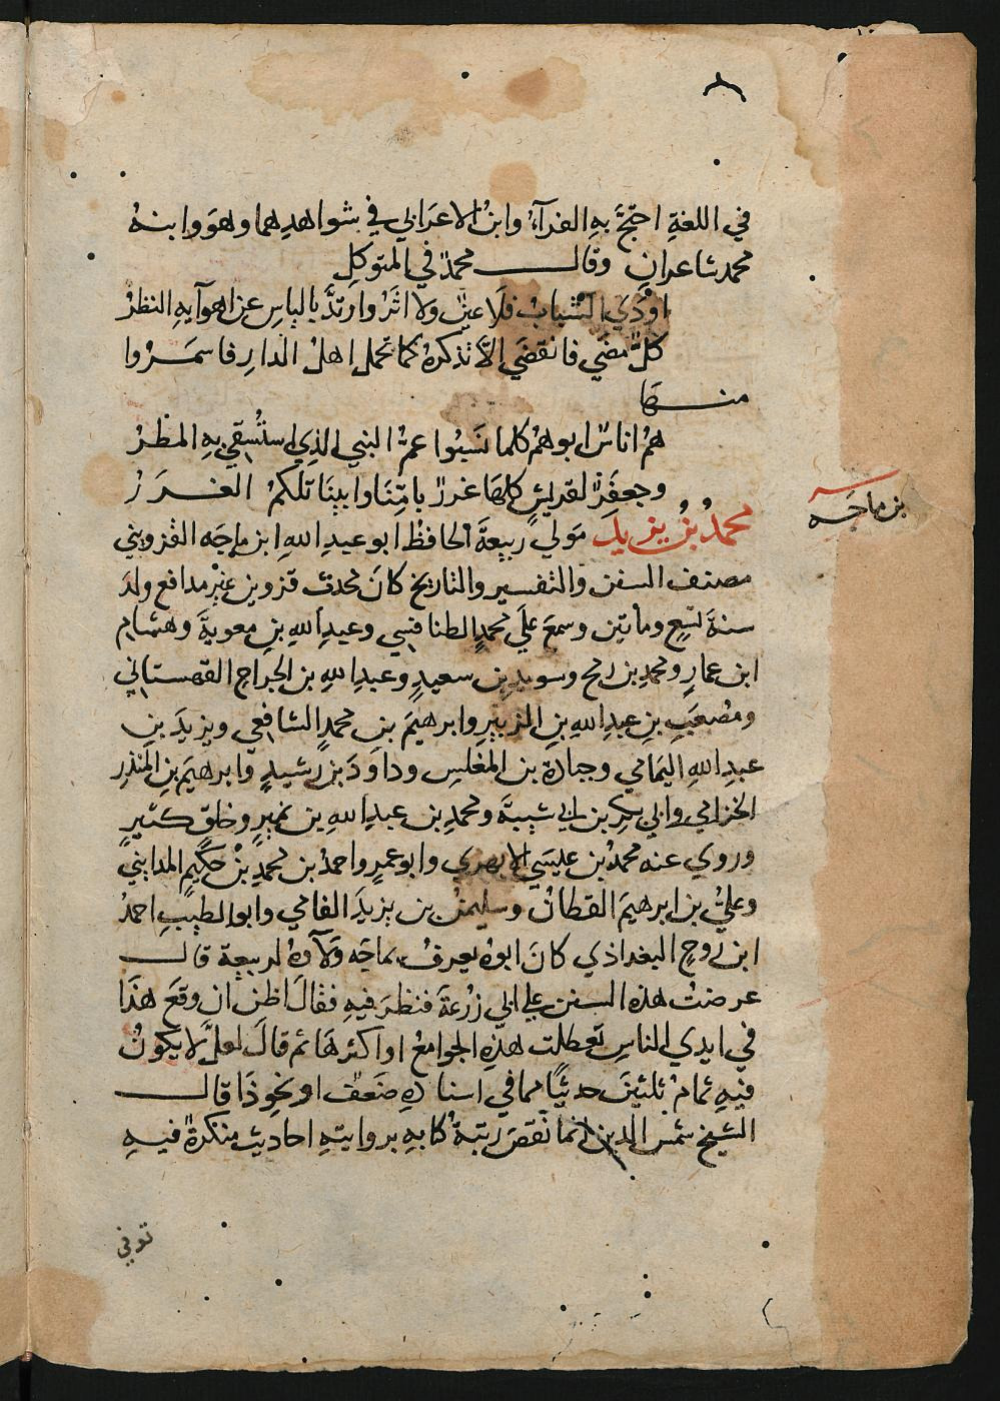 في اللغةِ احتجَّ بهِ الفرآءُ وابنُ الاعرَابي في شواهدِهما وهوَ وابنهُ
محمد شاعرانِ وقالـــ محمدٌ في المتوكلِ
اوْدَي الشبابُ فلَا عينٌ ولا اثَرُ وارتدَّ بالياسِ عن اهوآيهِ النظرُ
كلٌّ مضَي فانقضَي الاَّ تذكرهُ كما تحمل اهلُ الدارِ فاسمَـرُوا
منـــهَا
همُ اناسٌ ابوهمْ كلما نَسَبُوا عمُّ النبي الذِي استُسقِي بهِ المطرُ
وجعفَرٌ لقريشٍ كلهَا غررٌ يا مِّنَا وابينَا تلكمُ الغـرَرُ
محمدُ بْنُ يزيدَ مَولي ربيعةَ الحافظُ ابو عبدِ اللهِ ابن ماجَه القزويني
بن ماجَه
مصنف السنن والتفسير والتاريخ كانَ محدث قزوين غيْر مدافع ولدَ
سنةَ تسعٍ ومأتين وسمعَ علَي محمدٍ الطنافسِي وعبدِ اللهِ بنِ معويةَ وهشام
ابن عمارٍ ومحمدِ بن رمح وسويدِ بن سعيدٍ وعبدِ اللهِ بن الجراحِ القهستاني
ومصْعَبِ بنِ عبدِ اللهِ بنِ الزبيْرِ وابرهيمَ بن محمدٍ الشافِعي ويزيدَ بنِ
عبدِ اللهِ اليمَامي وجبارة بن المغلس وداودَ بن رشيدٍ وابرهيمَ بنِ المنذرِ
الحزامي وابي بكرِ بن ابي شيبةَ ومحمدِ بن عبدِ اللهِ بن نميرٍ وخلقٍ كثيرٍ
وروي عنه محمدُ بن عيسَي الابهري وابو عمرٍو احمدُ بن محمدِ بنْ حكيمٍ المدايني
وعليُّ بن ابرهيمَ القطانُ وسليمنُ بن يزيدَ الفامي وابو الطيبِ احمدُ
ابن روحٍ البغداذي كانَ ابوهُ يعرفُ بماجَه وَلآوهُ لربيعةَ قالـــ
عرضتُ هذه السنن علي ابي زُرعةَ فنظرَ فيهِ فقالَ اظن ان وقعَ هذَا
في ايدي الناسِ تعطلت هذِهِ الجوامعُ او اكثرهَا ثم قالَ لعلَّ لا يكونُ
فيهِ تمامُ ثلثينَ حديثًا مما في اسنادِهِ ضَعف او نحو ذَا قالـــ
الشيخ شمس الدين انما نَقَصَ رتبةَ كتابهِ بروايتهِ احاديث منكرةً فيهِ
توفي